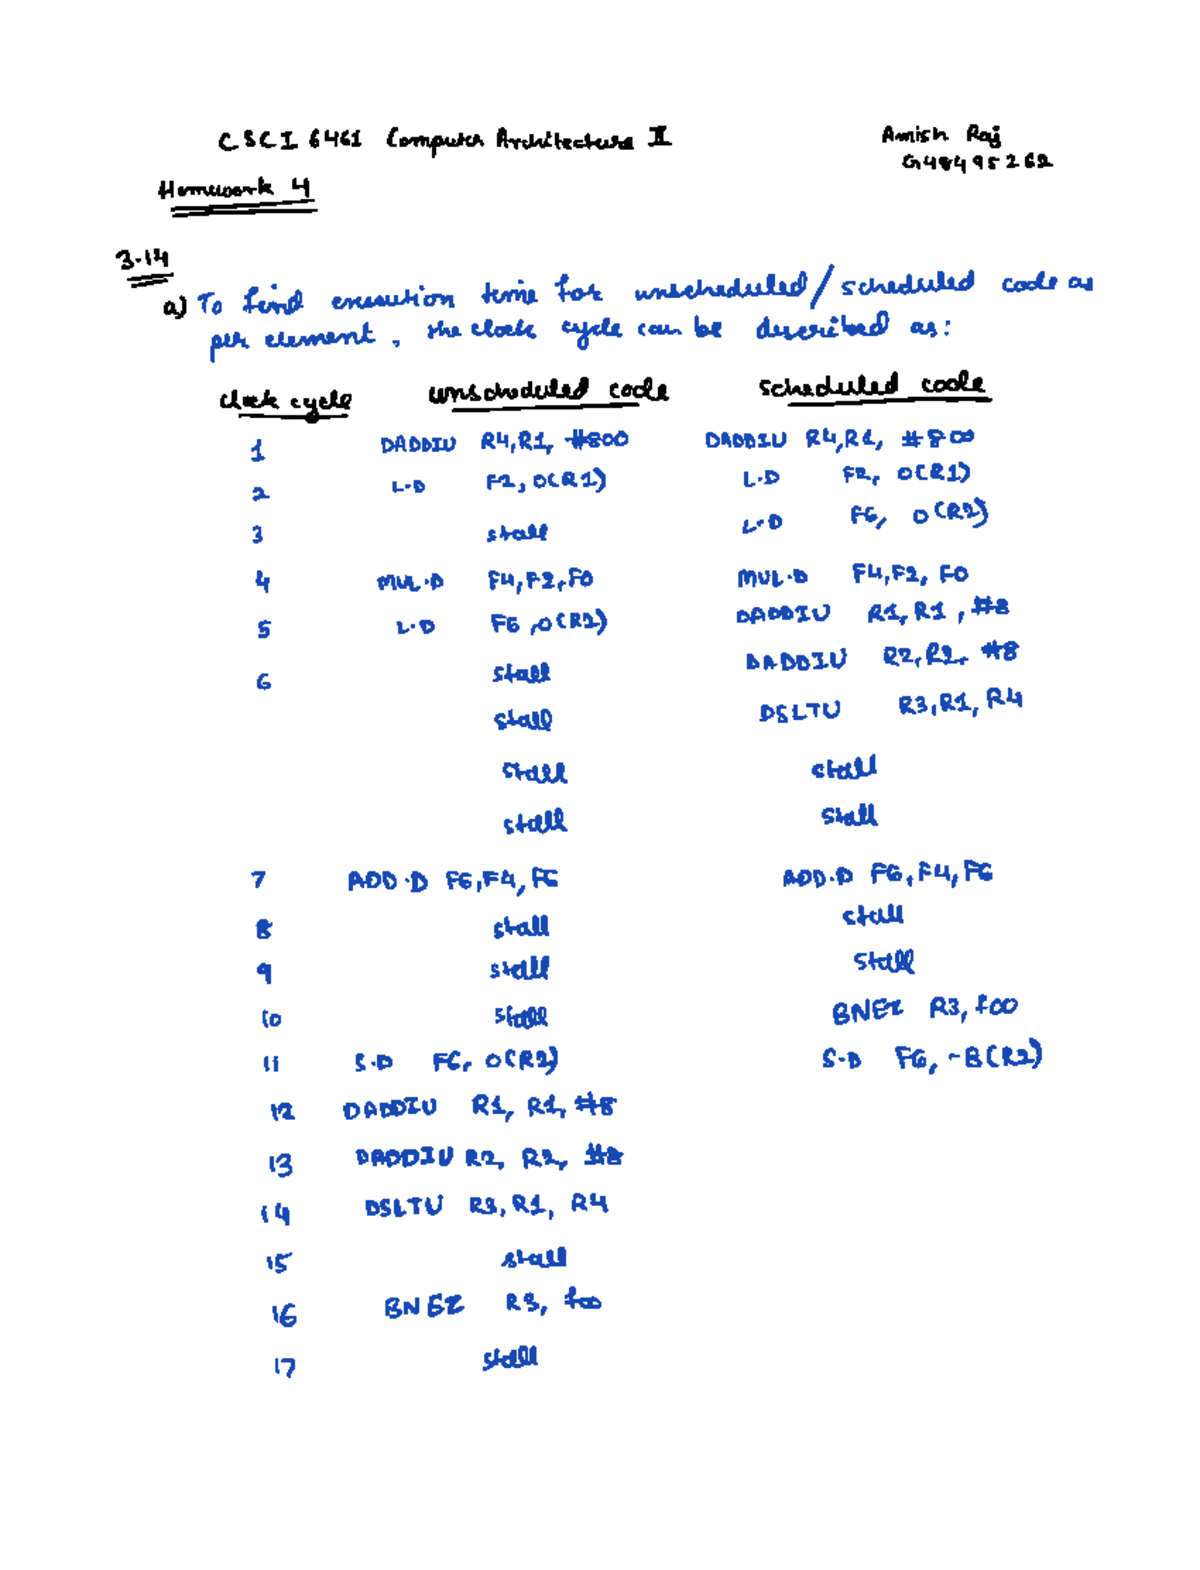 CSCI 6461 Computer Architecture II Amish Raj
G48495262
Homework 4
3.14
a) To find execution time for unscheduled/scheduled code as
per element, the clock cycle can be described as:
clock cycle unscheduled code scheduled code
1 DADDIU R4,R1, #800 DADDIU R4,R1, #800
2 L.D F2, 0(R1) L.D F2, 0(R1)
3 stall L.D F6, 0(R2)
4 MUL.D F4,F2,F0 MUL.D F4,F2, F0
5 L.D F6,0(R2) DADDIU R1,R1,#8
6 stall DADDIU R2,R2,#8
stall DSLTU R3,R1,R4
stall stall
stall stall
7 ADD.D F6,F4,F6 ADD.D F6,F4,F6
8 stall stall
9 stall stall
10 stall BNEZ R3, foo
11 S.D F6, 0(R2) S.D F6, -8(R2)
12 DADDIU R1, R1, #8
13 DADDIU R2, R2, #8
14 DSLTU R3,R1, R4
15 stall
16 BNEZ R3, foo
17 stall